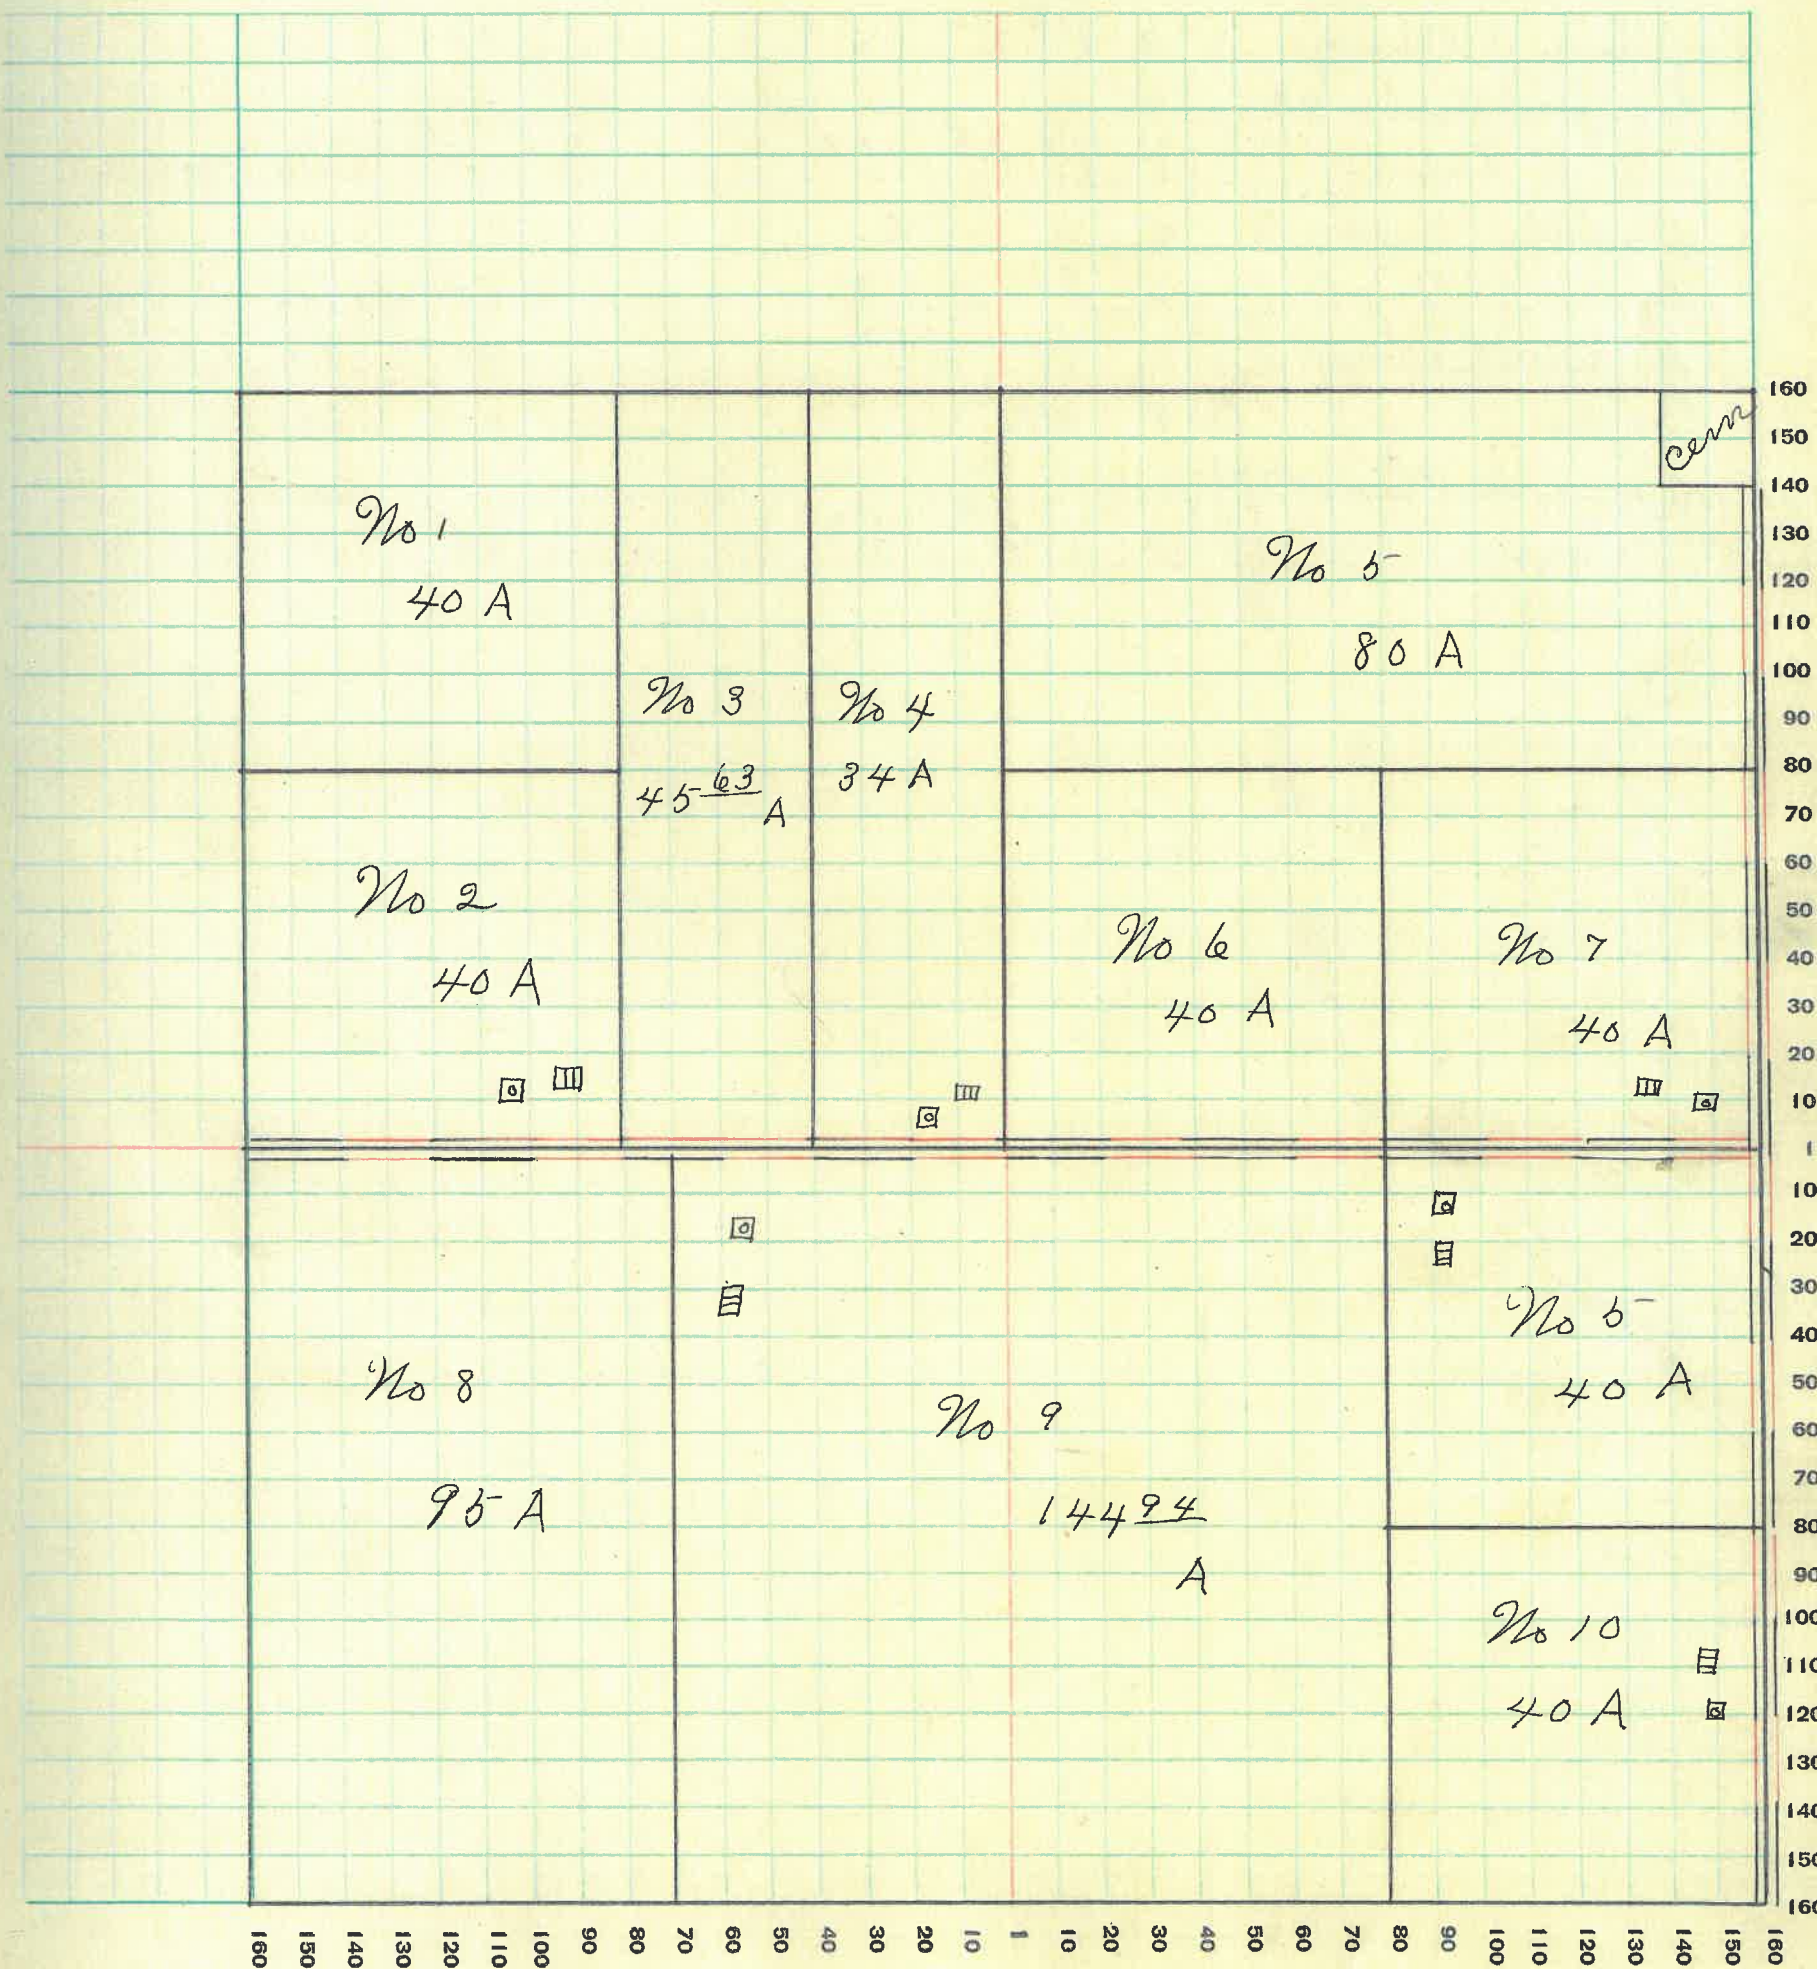 cem
No 1
40 A
No 2
40 A
No 3
45 63 A
No 4
34 A
No 5
80 A
No 6
40 A
No 7
40 A
No 8
95 A
No 9
144 94
A
No 5
40 A
No 10
40 A
160
150
140
130
120
110
100
90
80
70
60
50
40
30
20
10
1
10
20
30
40
50
60
70
80
90
100
110
120
130
140
150
160
160 150 140 130 120 110 100 90 80 70 60 50 40 30 20 10 1 10 20 30 40 50 60 70 80 90 100 110 120 130 140 150 160